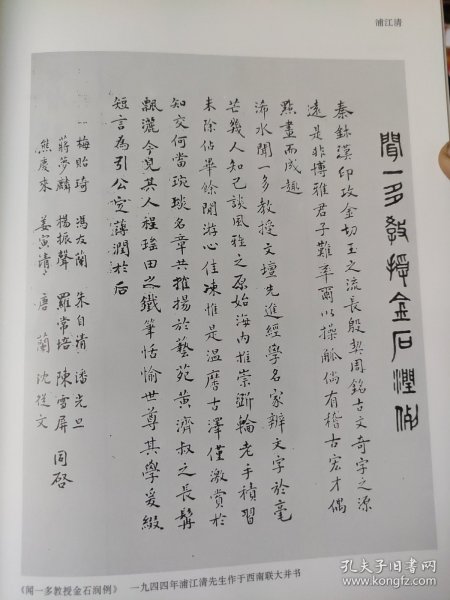 浦江清
聞一多教授金石潤例
秦鉥漢印攻金切玉之流長殷契周銘古文奇字之源
遠是非博雅君子難率爾以操觚倘有稽古宏才偶
點畫而成趣
浠水聞一多教授文壇先進經學名家辨文字於毫
芒幾人知己談風雅之原始海內推崇斲輪老手積習
未除佔畢餘閒游心佳凍惟是溫麐古澤僅激賞於
知交何當琬琰名章共推揚於藝苑黃濟叔之長髯
飄灑今見其人程瑤田之鐵筆恬愉世尊其學爰綴
短言為引公定薄潤於后
梅貽琦 馮友蘭 朱自清 潘光旦
蔣夢麟 楊振聲 羅常培 陳雪屏 同啓
熊慶來 姜寅清 唐蘭 沈從文
《闻一多教授金石润例》 一九四四年浦江清先生作于西南联大并书
孔夫子旧书网